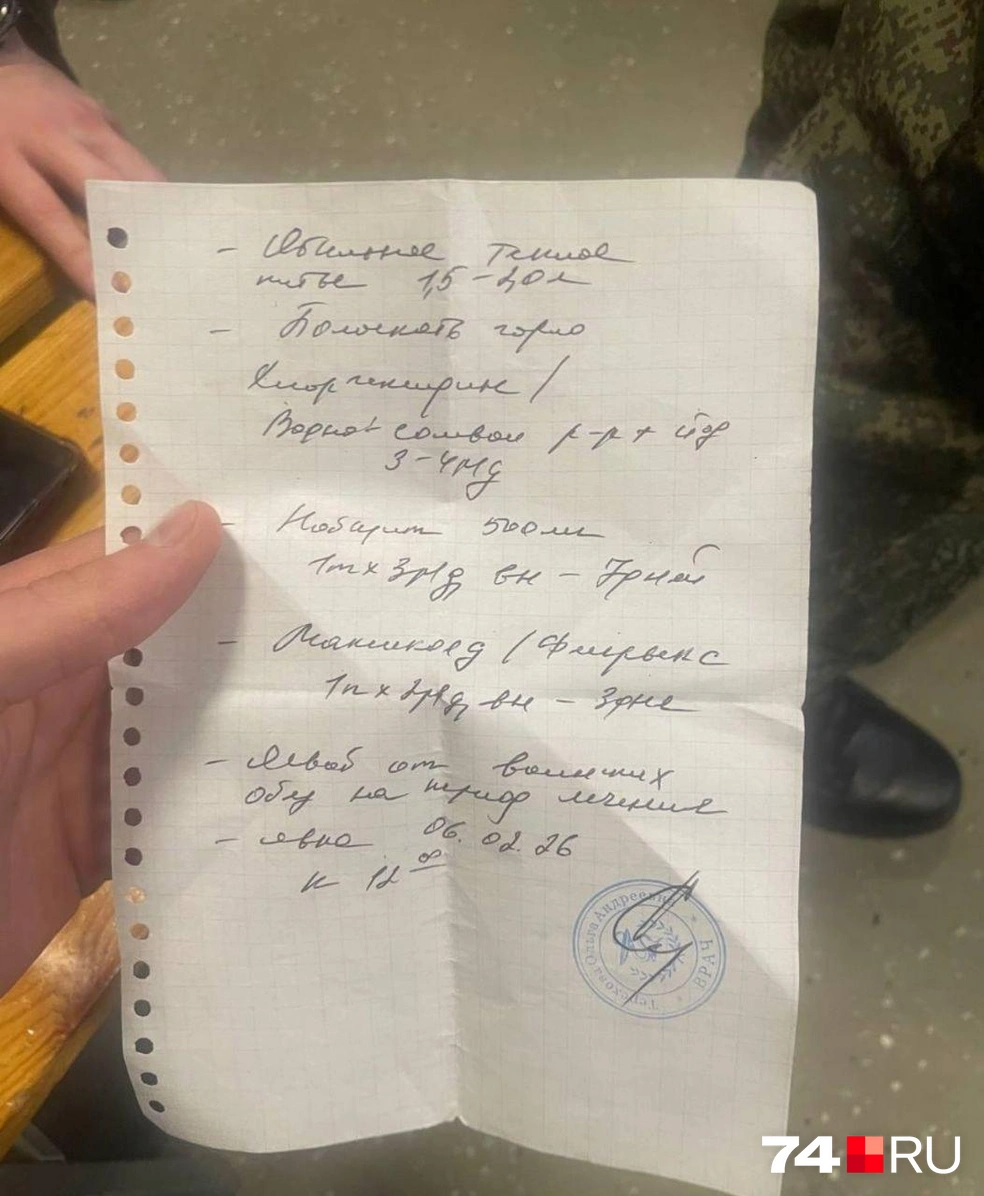 - Обильное теплое
питье 1,5-2,0 л
- Полоскать горло
Хлоргексидин /
Водно-солевой р-р + йод
3-4 р/д
- Нобазит 500 мг
1т х 3 р/д, вн - 7 дней
- Максиколд / Фл
1п х 2 р/д, вн - 3 дня
- Освоб от воинских
обяз на период лечения
- явка 06.02.26
к 12 00
Ольга Андреевна
ВРАЧ
74 RU